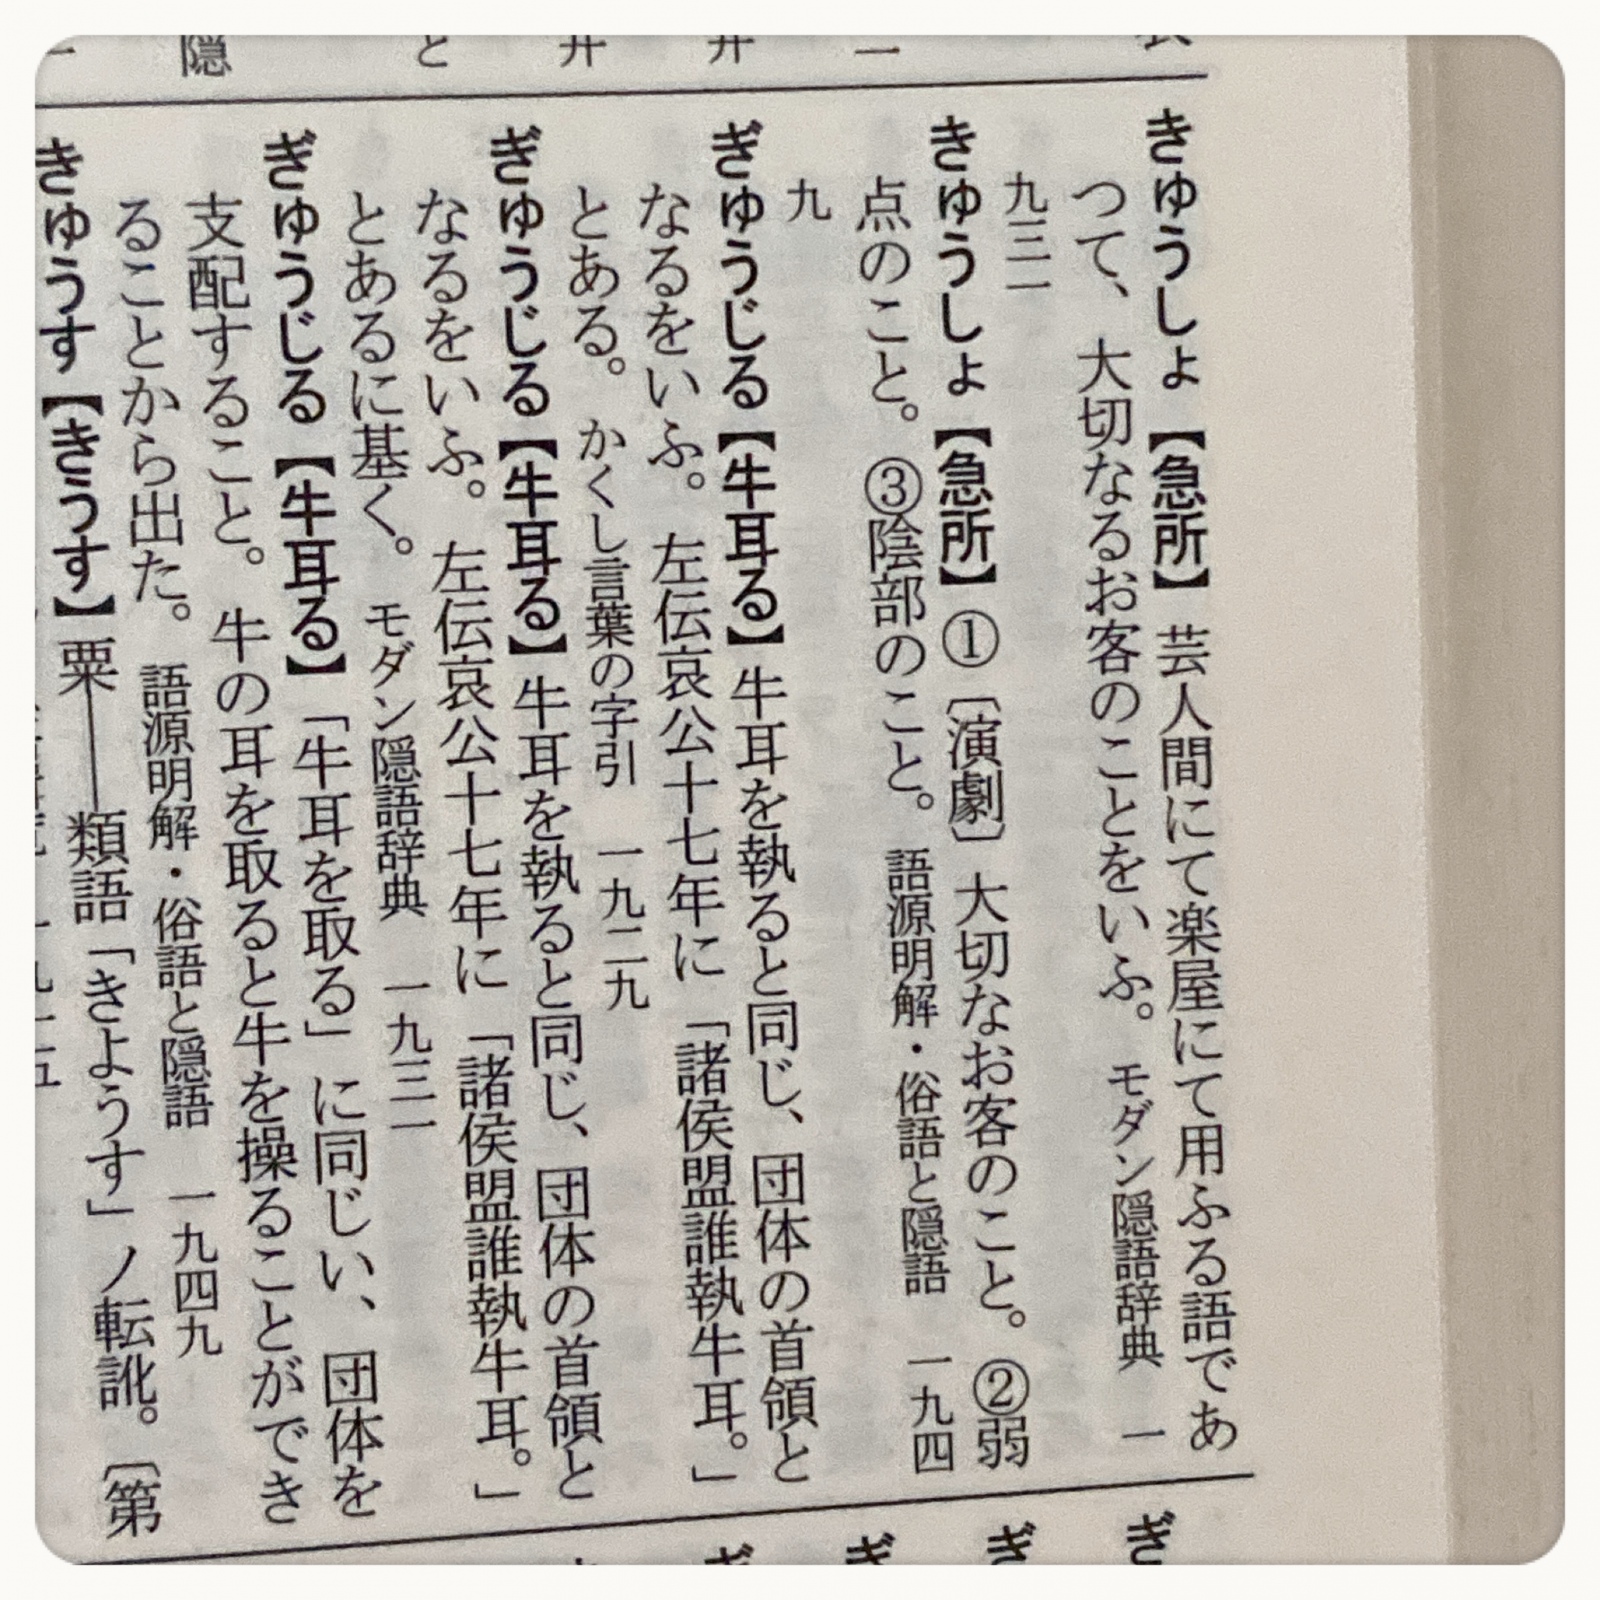 きゅうしょ【急所】芸人間にて楽屋にて用ふる語であ
つて、大切なるお客のことをいふ。 モダン隠語辞典 一
九三一
きゅうしょ【急所】①〔演劇〕大切なお客のこと。②弱
点のこと。③陰部のこと。 語源明解・俗語と隠語 一九四
九
ぎゅうじる【牛耳る】牛耳を執ると同じ、団体の首領と
なるをいふ。左伝哀公十七年に「諸侯盟誰執牛耳。」
とある。 かくし言葉の字引 一九二九
ぎゅうじる【牛耳る】牛耳を執ると同じ、団体の首領と
なるをいふ。左伝哀公十七年に「諸侯盟誰執牛耳。」
とあるに基く。 モダン隠語辞典 一九三一
ぎゅうじる【牛耳る】「牛耳を取る」に同じい、団体を
支配すること。牛の耳を取ると牛を操ることができ
ることから出た。 語源明解・俗語と隠語 一九四九
きゅうす【きうす】粟――類語「きようす」ノ転訛。〔第